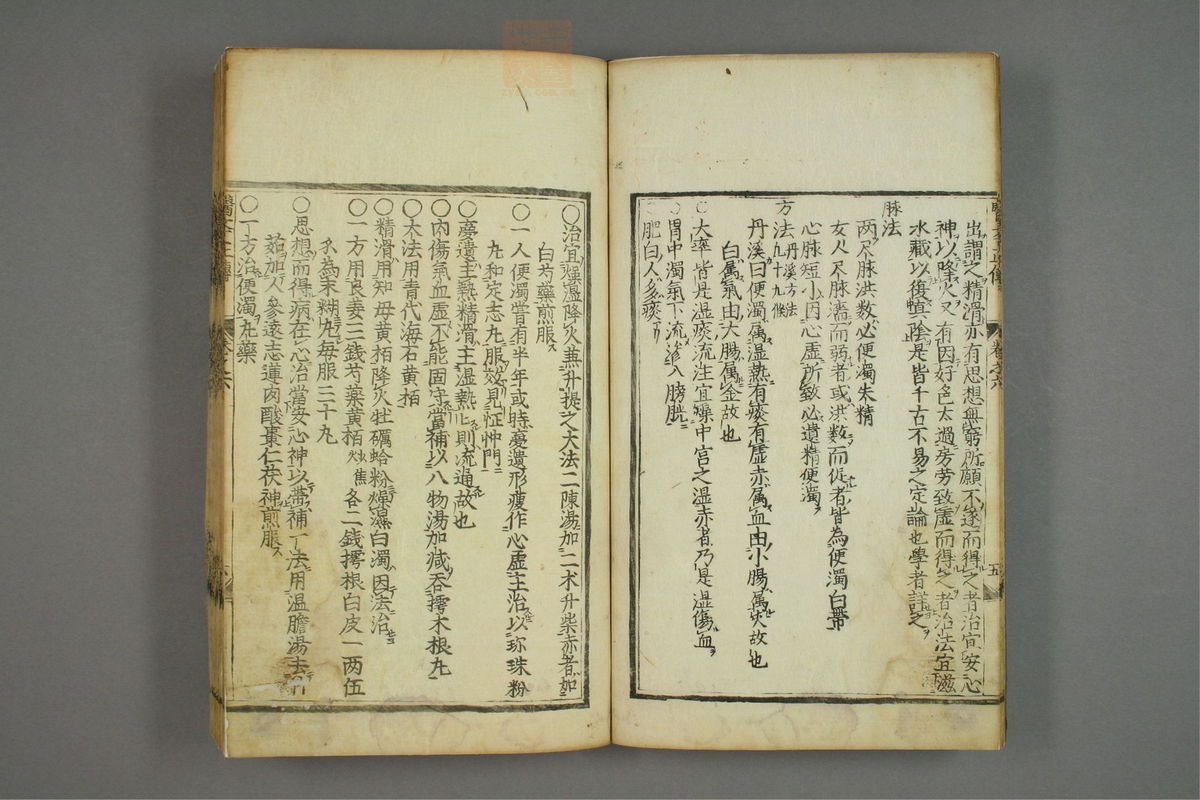 出謂之精滑亦有思想無窮所願不遂而得之者治宜安心
神以降火又有因好色太過房勞致虛而得之者治法宜滋
水藏以復真陰是皆千古不易之定論也學者詳之
脉法
两尺脉洪数必便濁朱精
女人尺脉濇而弱者或洪数而促者皆為便濁白帶
心脉短小因心虛所致必遺精便濁
方法丹溪方法九十九條
丹溪曰便濁属湿熱有痰有虛赤属血由小腸属火故也
白属氣由大腸属金故也
大率皆是湿痰流注宜燥中宮之湿赤者乃是湿傷血
胃中濁氣下流滲入膀胱
肥白人多痰
〇治宜燥湿降火兼升提之大法二陳湯加二术升柴赤者加
白芍藥煎服
〇一人便濁嘗有半年或時夢遺形瘦作心虛主治以珍珠粉
丸和定志丸服效則怔忡門
〇夢遺主熱精滑主湿熱則流通故也
〇内傷氣血虛不能固守當補以八物湯加减吞樗木根丸
〇大法用青代海石黄柏
〇精滑用知母黄栢降火牡礪蛤粉燥濕白濁因法治
〇一方用良姜三錢芍藥黄栢各二錢樗根白皮一两伍
為末糊丸每服三十丸
〇思想而得病在心治當安心神以帯補一法用温膽湯去
茹加人參遠志蓮肉酸棗仁茯神煎服
〇一方治便濁丸藥